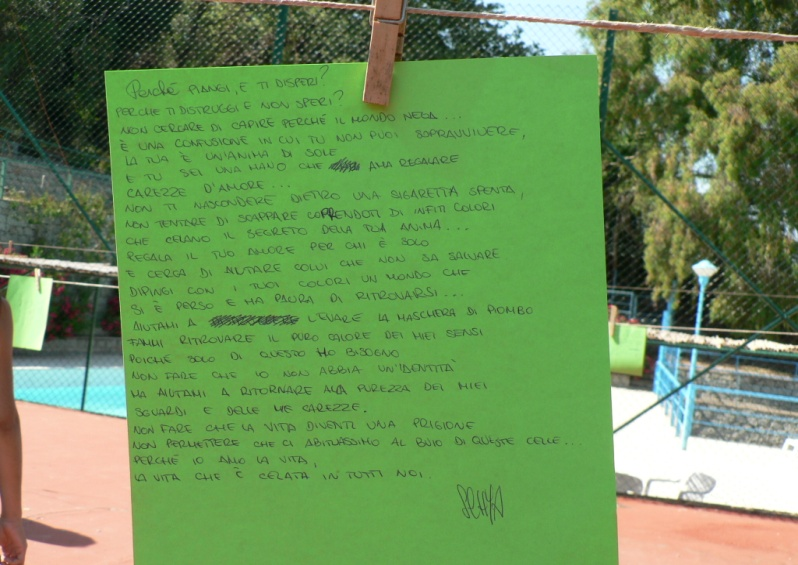 Perché PIANGI, E TI DISPERI?
PERCHE TI DISTRUGGI E NON SPERI?
NON CERCARE DI CAPIRE PERCHÉ IL MONDO NEGA...
È UNA CONFUSIONE IN CUI TU NON PUOI SOPRAVVIVERE,
LA TUA È UN'ANIMA DI SOLE
E TU SEI UNA MANO CHE AMA REGALARE
CAREZZE D'AMORE...
NON TI NASCONDERE DIETRO UNA SIGARETTA SPENTA,
NON TENTARE DI SCAPPARE COPRENDOTI DI INFITI COLORI
CHE CELANO IL SEGRETO DELLA TUA ANIMA...
REGALA IL TUO AMORE PER CHI È SOLO
E CERCA DI AIUTARE COLUI CHE NON SA SALVARE
DIPINGI CON I TUOI COLORI UN MONDO CHE
SI È PERSO E HA PAURA DI RITROVARSI...
AIUTAMI A LEVARE LA MASCHERA DI PIOMBO
FAMMI RITROVARE IL PURO CALORE DEI MIEI SENSI
POICHÉ SOLO DI QUESTO HO BISOGNO
NON FARE CHE IO NON ABBIA UN'IDENTITÀ
MA AIUTAMI A RITORNARE ALLA PUREZZA DEI MIEI
SGUARDI E DELLE MIE CAREZZE.
NON FARE CHE LA VITA DIVENTI UNA PRIGIONE
NON PERMETTERE CHE CI ABITUASSIMO AL BUIO DI QUESTE CELLE...
PERCHÉ IO AMO LA VITA,
LA VITA CHE È CELATA IN TUTTI NOI.